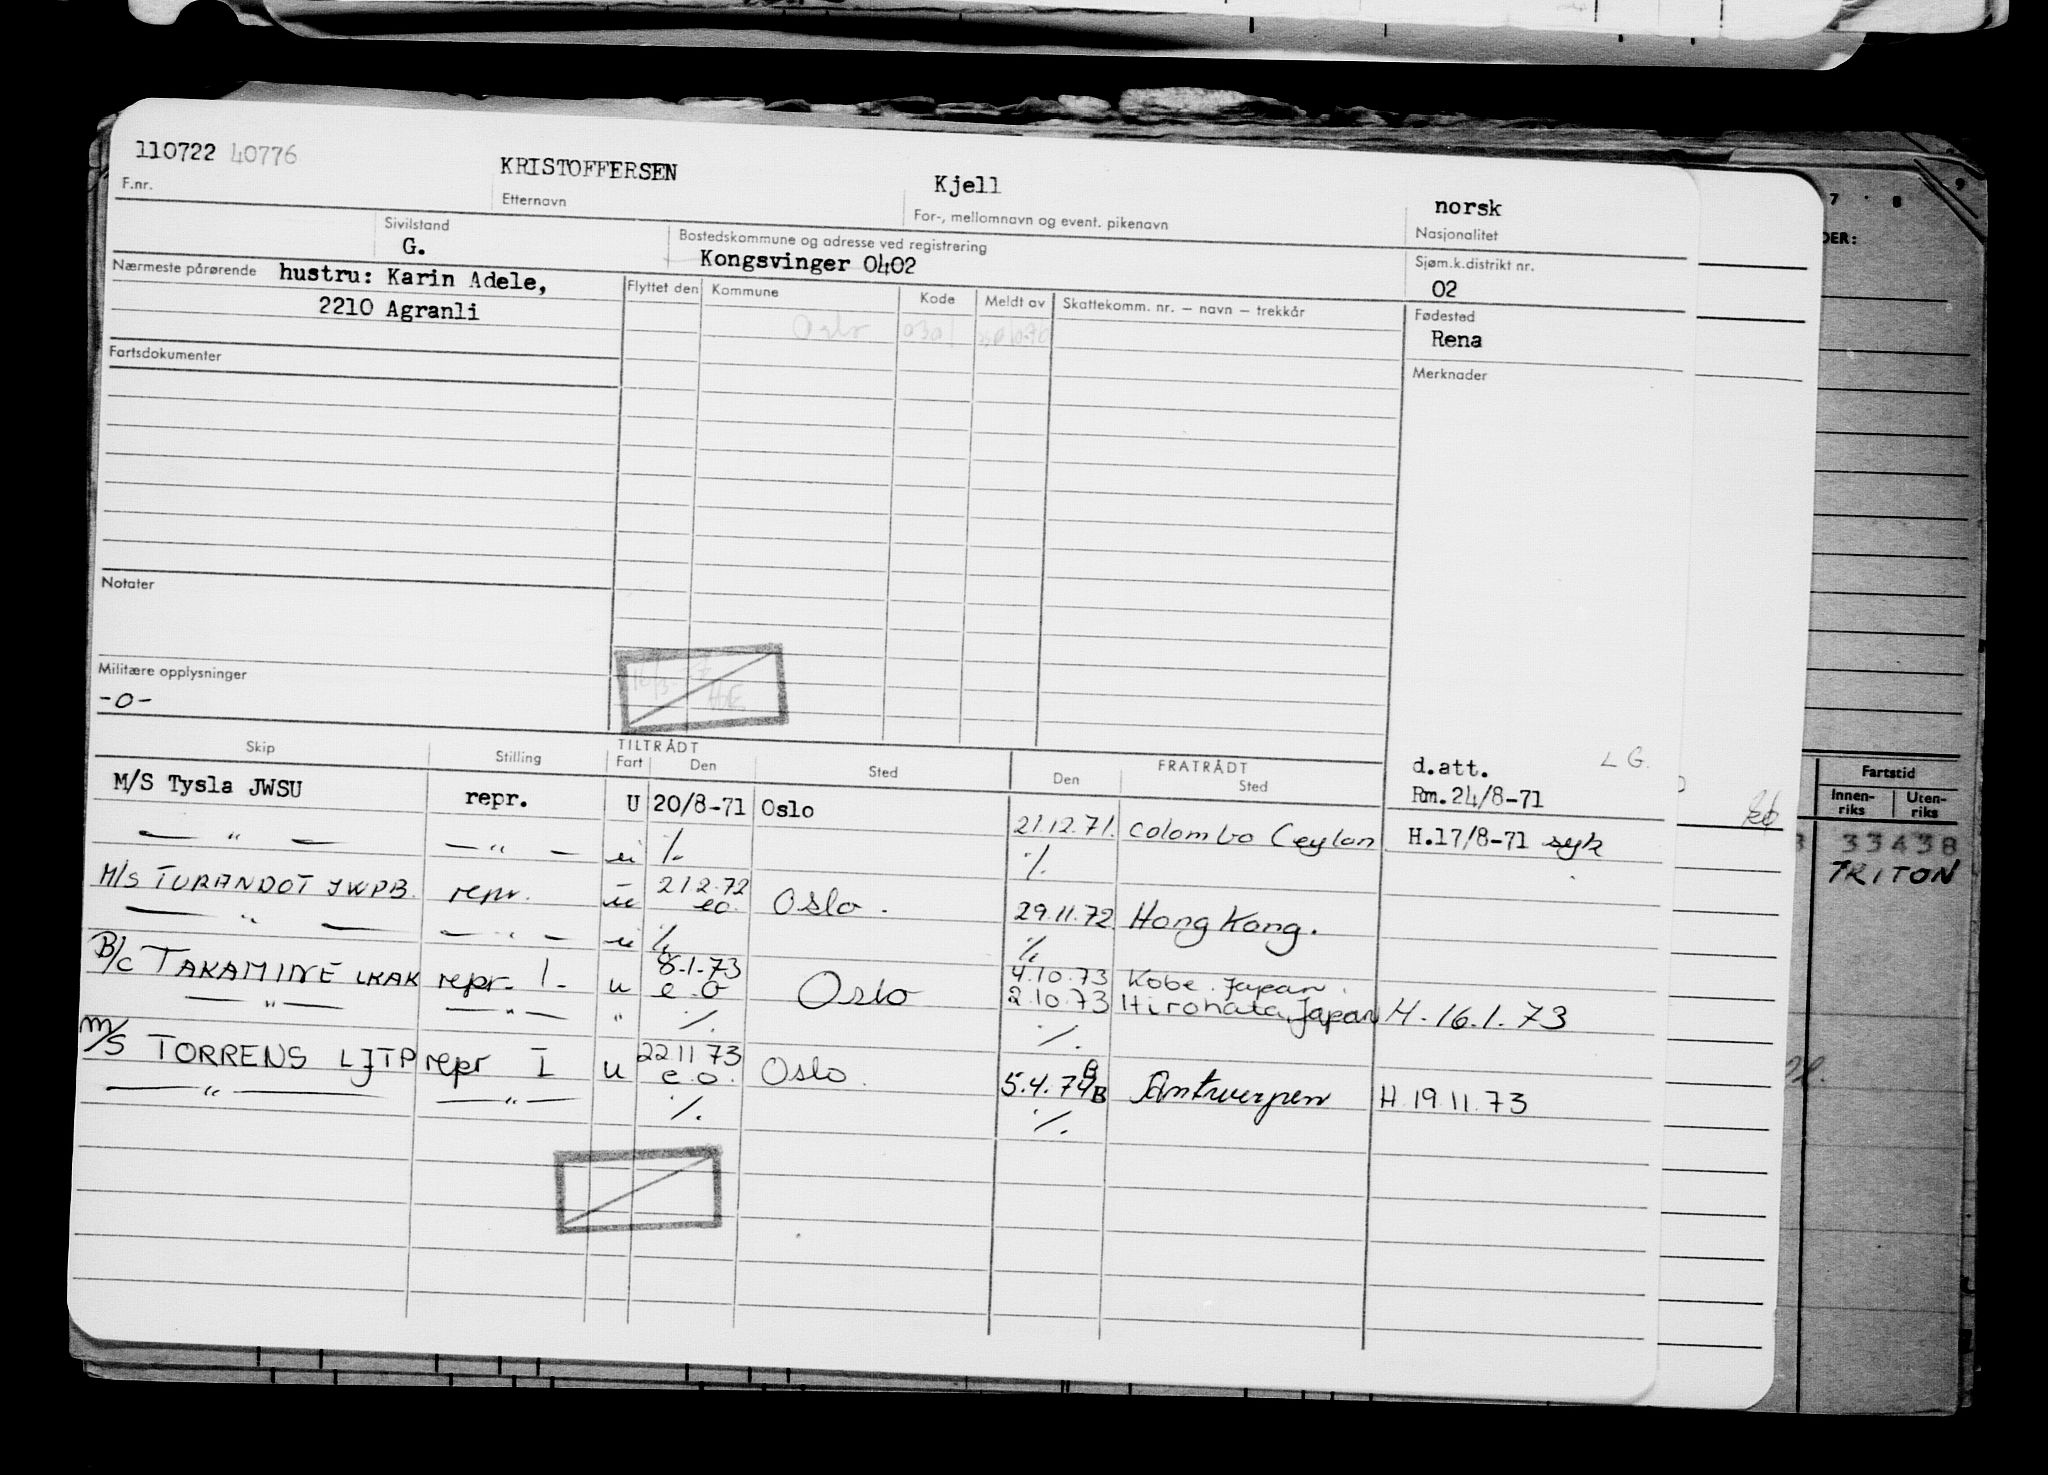 110722 40776 KRISTOFFERSEN Kjell norsk
F.nr. Etternavn For-, mellomnavn og event. pikenavn Nasjonalitet
Sivilstand Bostedskommune og adresse ved registrering Sjøm.k.distrikt nr.
G. Kongsvinger 0402 02
Nærmeste pårørende hustru: Karin Adele, Flyttet den Kommune Kode Meldt av Skattekomm. nr. — navn — trekkår Fødested
2210 Agranli Oslo 0301 Rena
Fartsdokumenter Merknader
Notater
Militære opplysninger
-0-
Skip Stilling TILTRÅDT FRATRÅDT
Fart Den Sted Den Sted
d.att. L G.
M/S Tysla JWSU repr. U 20/8-71 Oslo 21.12.71. Colombo Ceylon Rm.24/8-71
— " — — " — u ⁒ ⁒ H.17/8-71 syk
M/S TURANDOT JWPB. repr. u 212.72 eo. Oslo. 29.11.72 Hong Kong.
— " — — " — u ⁒ ⁒
B/C TAKAMINE LKAK repr. 1. u 8.1.73 e.o Oslo 4.10.73 Kobe. Japan.
2.10.73 Hirohata, Japan H. 16.1.73
— " — — " — " ⁒ ⁒
M/S TORRENS LJTP repr I u 22 11 73 e.o. Oslo. 5.4.74 B Antwerpen H.19.11.73
— " — — " — ⁒ ⁒
7 8 9
DER:
Fartstid
Innen-riks Uten-riks
33438
TRITON